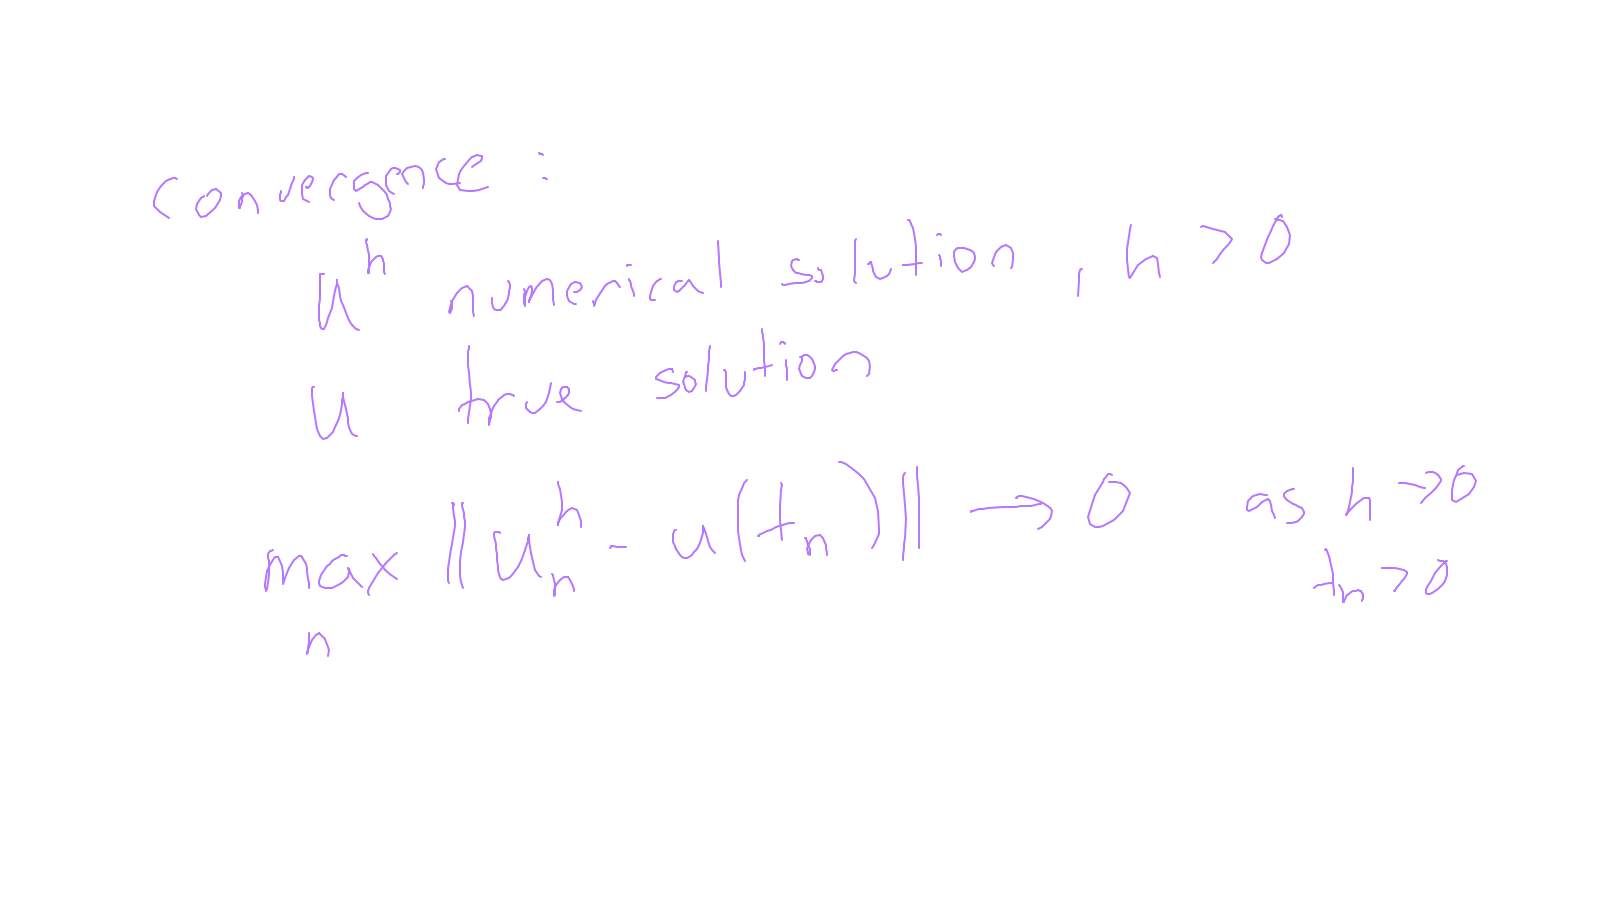 convergence :
u^h numerical solution, h > 0
u true solution
max_n ‖u_n^h - u(t_n)‖ → 0 as h → 0
t_n > 0